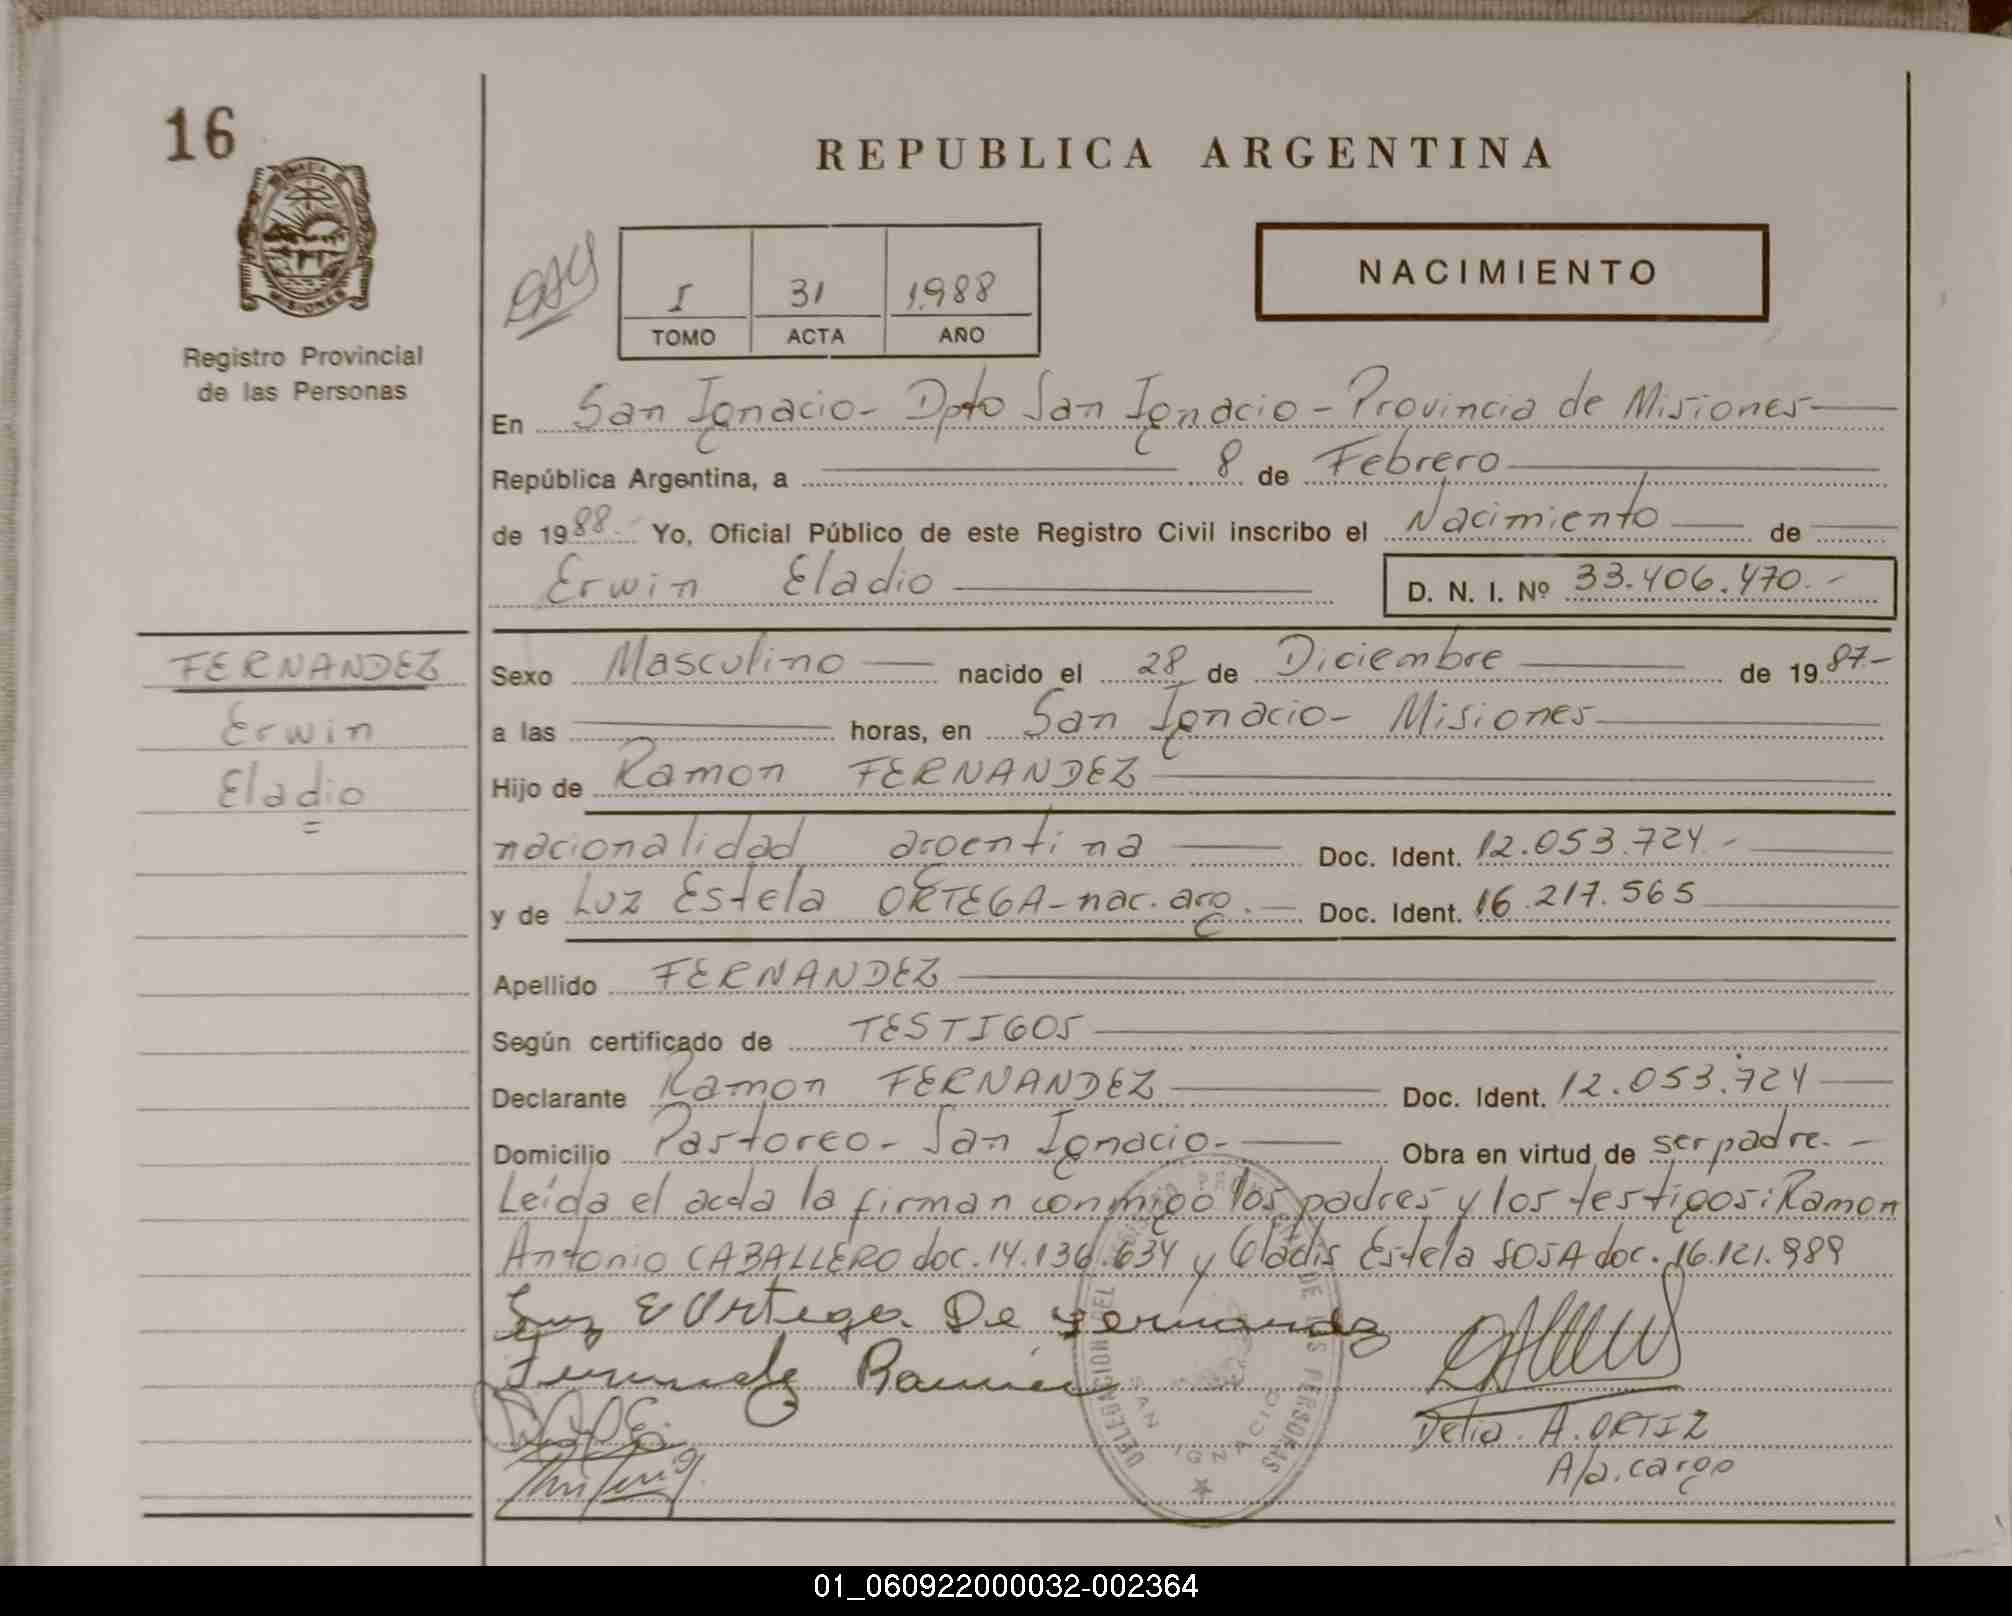 16
REPUBLICA ARGENTINA
MISIONES
Registro Provincial
de las Personas
I 31 1.988
TOMO ACTA AÑO
NACIMIENTO
En San Ignacio- Dpto San Ignacio - Provincia de Misiones
República Argentina, a 8 de Febrero
de 1988.- Yo, Oficial Público de este Registro Civil inscribo el Nacimiento de
Erwin Eladio D. N. I. Nº 33.406.470.-
FERNANDEZ
Erwin
Eladio
Sexo Masculino nacido el 28 de Diciembre de 1987.-
a las horas, en San Ignacio- Misiones
Hijo de Ramon FERNANDEZ
nacionalidad argentina Doc. Ident. 12.053.724.-
y de Luz Estela ORTEGA-nac. arg. Doc. Ident. 16.217.565
Apellido FERNANDEZ
Según certificado de TESTIGOS
Declarante Ramon FERNANDEZ Doc. Ident. 12.053.724
Domicilio Pastoreo- San Ignacio- Obra en virtud de ser padre.-
Leída el acta la firman conmigo los padres y los testigos: Ramon
Antonio CABALLERO doc. 14.136.634 y Gladis Estela SOSA doc. 16.121.989
Luz E Ortega De Fernandez
Fernandez Ramón
DELEGACION DEL REGISTRO PROVINCIAL DE LAS PERSONAS
SAN IGNACIO
Delia A. ORTIZ
A/a. cargo
01_060922000032-002364